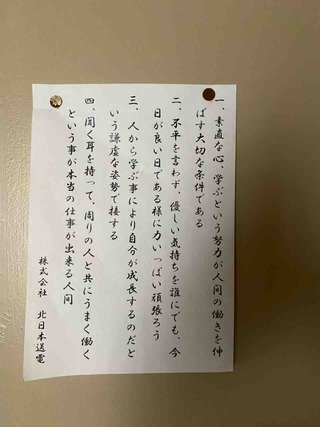 一、素直な心、学ぶという努力が人間の働きを伸
ばす大切な条件である
二、不平を言わず、優しい気持ちを誰にでも、今
日が良い日である様に力いっぱい頑張ろう
三、人から学ぶ事により自分が成長するのだと
いう謙虚な姿勢で接する
四、聞く耳を持って、周りの人と共にうまく働く
という事が本当の仕事が出来る人間
株式会社 北日本送電